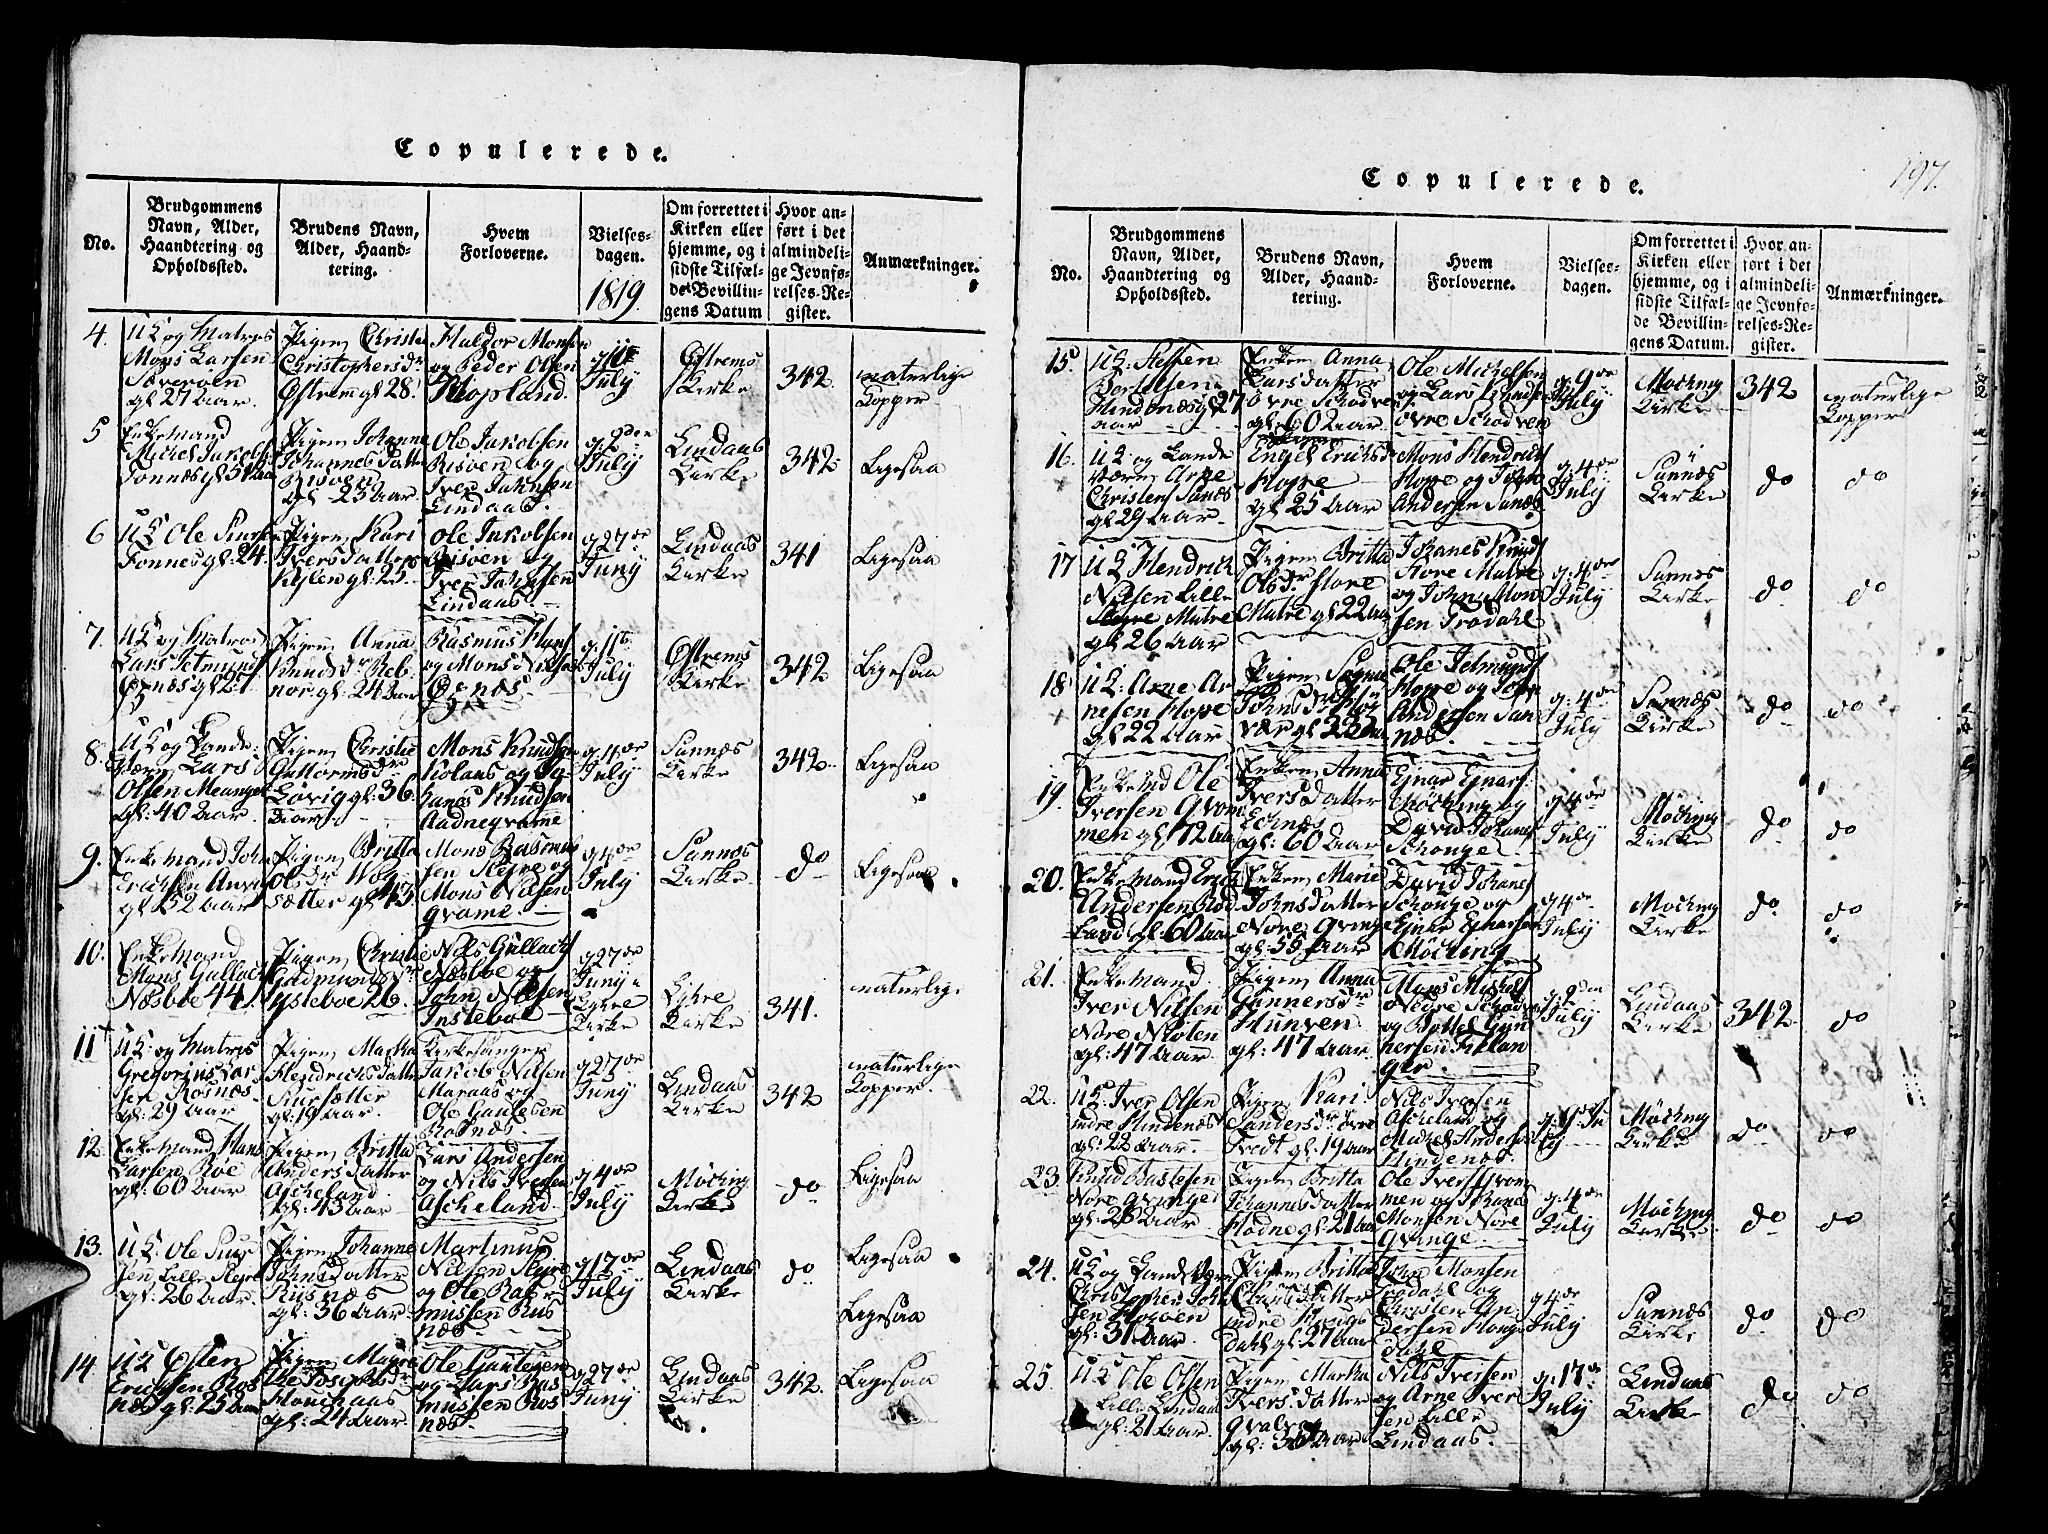 Copulerede.
No.
Brudgommens
Navn, Alder,
Haandtering og
Opholdssted.
Brudens Navn,
Alder, Haand-
tering.
Hvem
Forloverne.
Vielses-
dagen.
1819.
Om forrettet i
Kirken eller
hjemme, og i
sidste Tilfæl-
de Bevillin-
gens Datum
Hvor an-
ført i det
almindeli-
ge Jevnfø-
relses-Re-
gister.
Anmærkninger.
4.
UK og Matros
Mons Larsen
Sæveroen
gl 27 Aar.
Pigen Christe
Christophersdr
Østrem gl 28.
Haldor Monsen
og Peder Olsen
Kopland.
July
Ostrems
Kirke
342.
naturlige
Kopper
5
Enkemand
Michel Jakobs
Fonnes gl 51 Aar
Pigen Johanne
Johannes Datter
Risøen
gl 25 Aar.
Ole Jakobsen
Risøen og
Iver Johnsen
Lindaas.
g 2den
July
Lindaas
Kirke
342.
Ligesaa
6
UK Ole
Fonnes gl: 24.
Pigen Kari
Ivers Datter
gl: 25.
Ole Jakobsen
Risøen og
Iver Johnsen
Lindaas.
g 27de
Juny
Lindaas
Kirke
341
Ligesaa
7.
UK og Matros
Lars
gl 27.
Pigen Anna
Knudsdr
gl: 24 Aar
Rasmus Hans
og Mons Nilsen
g: 11te
July
Ostrems
Kirke
342
Ligesaa
8.
UK og Lande-
værn Lars
Olsen Meanger
gl: 40 Aar.
Pigen Christie
Guttormsdr
Løvig gl: 36
Aar
Mons Knudsen
Kolaas og
Knudsen
Aadnegvame
g. 4de
July
Sannæs
Kirke
342.
Ligesaa
9.
Enkemand John
Erichsen
gl 52 Aar
Pigen Britta
Olsdr
sætter gl 43
Mons Rasmus
sen Slejre og
Mons Nilsen
gvame.
g 4de
July
Sannæs
Kirke.
do
Ligesaa
10.
Enkemand
Mons Gullach
Næsbøe 44.
Pigen Christie
Gudmundsdr
Ystebøe 26.
Nils Gullach
Næsbøe og
John Nilsen
Instebøe
g 27de
Juny
Lyhre
Kirke
341.
naturlige
11
UK og Matros
Gregorius Lar
sen Rosnæs
gl: 29 Aar
Pigen Martha
Hendrichs Datter
gl: 19 Aar.
Kirkesanger
Jakob Nilsen
Maraas og
Ole Gautesen
Rosnæs.
g 27de
Juny
Lindaas
Kirke
342
naturlige
Kopper
12
Enkemand Hans
Larsen Roe
gl: 60 Aar
Pigen Britta
Anders Datter
Ascheland
gl: 43 Aar
Lars Andersen
og Nils Iversen
Ascheland.
g 4de
July
Møching
Kirke
do
Ligesaa
13.
UK: Ole
sen Lille Slejre
gl: 26 Aar.
Pigen Johanne
Johns Datter
Risnæs
gl: 36 Aar
Martinus
Nilsen Slejre
og Ole Ras
mussen Ris
næs.
g 17de
July
Lindaas
Kirke
do
Ligesaa
Ligesaa
14
UK Østen
Erichsen Ros
næs gl: 25 Aar
Pigen
Josephsdr
gl: 24 Aar
Ole Gautesen
og Lars Ras
mussen Ros
næs.
g 27de
Juny
Lindaas
Kirke
342.
Ligesaa
Copulerede.
197.
No.
Brudgommens
Navn, Alder,
Haandtering og
Opholdssted.
Brudens Navn,
Alder, Haand-
tering.
Hvem
Forloverne.
Vielses-
dagen.
Om forrettet i
Kirken eller
hjemme, og i
sidste Tilfæl-
de Bevillin-
gens Datum.
Hvor an-
ført i det
almindeli-
ge Jevnfø-
relses-Re-
gister.
Anmærkninger.
15.
UK: Steffen
Bertelsen
Hindenæs gl 27
Aar
Enken Anna
Larsdatter
Øvre Schodven
gl: 60 Aar.
Ole Michelsen
og Lars Knudsen
Øvre Schodven
g. 9de
July
Mochng
Kirke
342
naturlige
Kopper
16.
UK og Lande
Værn Arne
Christens Sanæs
gl 29 Aar
Engel Erichsdr
Hope
gl 25 Aar
Mons Hendrich
Hope og John
Andersen Sanæs
g: 4de
July
Sannæs
Kirke
do
do
17
UK Hendrich
Nilsen Lille
Matre
gl 26 Aar
Pigen Britta
Olsdr Store
Matre gl 22 Aar
Johanes Knuds
Store Matre
og John Mon
sen Trodahl
g: 4de
July
Sannæs
Kirke
do
do
18
UK: Arne Ar
nesen Hope
gl 22 Aar
Pigen
Johnsdr
vær gl
Ole Jetmunds
Hope og John
Andersen San
næs.
g: 4de
July
Sannæs
Kirke
do
do
19.
Enkemd Ole
Iversen Qvom
men gl: 72 Aar
Enken Anna
Ivers Datter
Echnæs
gl: 60 Aar
Ejnar Ejnars
Möching og
David Johanes
Schonge
g 4de
July
Möching
Kirke
do
do
20.
Enkemand Erich
Andersen Rød
land gl: 60 Aar
Enken Marie
Johns Datter
Nore Qvinge
gl: 55 Aar
David Johanes
Schonge og
Ejnar Ejnarsen
Möching
g 4de
July
Mochng
Kirke
do
do
21.
Enkemand
Iver Nilsen
Nore
gl: 47 Aar
Pigen Anna
Gunnersdr
Hunven
gl: 47 Aar.
Mons Michels
Nedre Schodven
og Bottel Gun
nersen Fielan
ger.
g 2den
July
Lindaas
Kirke
342.
do
22.
UK. Iver Olsen
indre Hindenæs
gl: 22 Aar.
Pigen Kari
Sandersdr Øvre
Tvedt gl: 19 Aar
Nils Iversen
Ascheland og
Michel Andersen
Hindenæs.
g: 9de Ju
ly
Möchng
Kirke
do
do
23.
Knud Bastesen
Nore Qvinge
gl: 26 Aar
Pigen Britta
Johannes Datter
Hodne gl: 21 Aar
Ole Iversen Qvom
men og Johanes
Monsen Nore
Qvinge.
g: 4de
July
Möchng
Kirke.
do
do
24.
UK og Lands Værn
Christopher John
sen
gl: 31 Aar.
Pigen Britta
Claus Datter
indre Hougs
dahl gl: 27 Aar
John Monsen
Trodahl og
Christen An
dersen Hougs
dahl
g 4de
July
Sannæs
Kirke
do
do
25.
UK Ole Olsen
Lille Lindaas
gl: 21 Aar.
Pigen Martha
Ivers Datter
Qvalvog
gl: 30 Aar
Nils Iversen
og Arne Iver
sen Lille
Lindaas.
g: 17de
July
Lindaas
Kirke
do
do